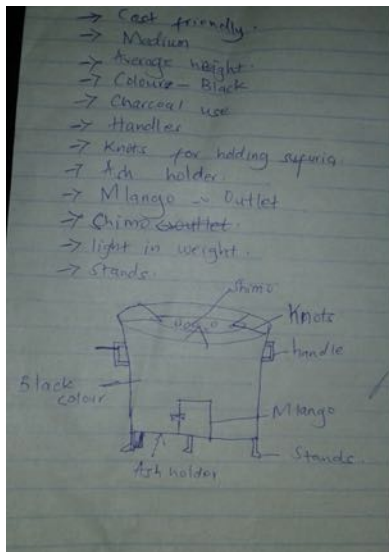 → Cost friendly.
→ Medium
→ Average height.
→ Colours - Black
→ Charcoal use
→ Handler
→ Knots for holding sufuria.
→ Ash holder.
→ Mlango - Outlet
→ Shimo outlet
→ light in weight.
→ Stands.
Shimo
Knots
handle
Black
colour
Mlango
Stands.
Ash holder